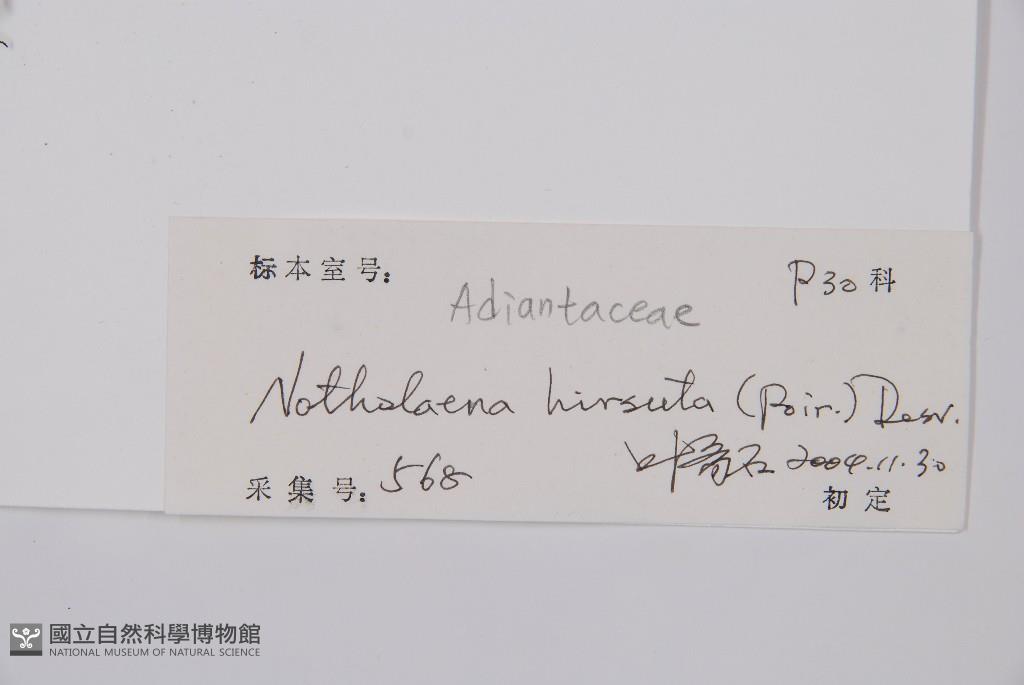 标本室号:
P30科
Adiantaceae
Notholaena hirsuta (Poir.) Desv.
叶育石 2004.11.30
采集号: 568
初定
國立自然科學博物館
NATIONAL MUSEUM OF NATURAL SCIENCE